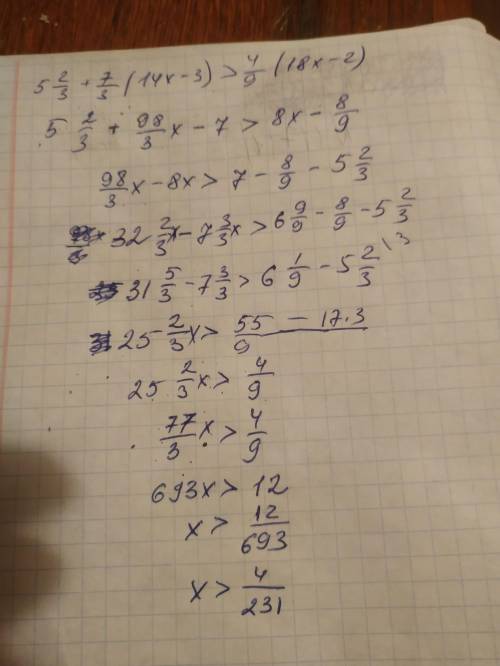 5 2/3 + 7/3 (14x-3) > 4/9 (18x-2)
5 2/3 + 98/3 x - 7 > 8x - 8/9
98/3 x - 8x > 7 - 8/9 - 5 2/3
32 2/3 x - 7 3/3 x > 6 9/9 - 8/9 - 5 2/3
31 5/3 - 7 3/3 > 6 1/9 - 5 2/3 \3
25 2/3 x > 55 - 17·3 / 9
25 2/3 x > 4/9
77/3 x > 4/9
693x > 12
x > 12/693
x > 4/231